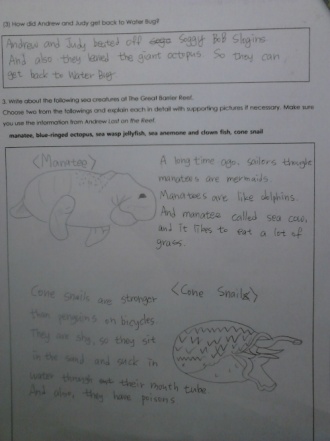 (3) How did Andrew and Judy get back to Water Bug?
Andrew and Judy beated off Soggy Bob Slogins
And also they beated the giant octopus. So they can
get back to Water Bug.
3. Write about the following sea creatures at The Great Barrier Reef.
Choose two from the followings and explain each in detail with supporting pictures if necessary. Make sure
you use the information from Andrew Lost on the Reef.
manatee, blue-ringed octopus, sea wasp jellyfish, sea anemone and clown fish, cone snail
<Manatee>
A long time ago, sailers thought
manatees are mermaids.
Manatees are like dolphins.
And manatee called sea cow,
and it likes to eat a lot of
grass.
<Cone Snails>
Cone snails are stronger
than penguins on bicycles.
They are shy, so they sit
in the sand and suck in
water through their mouth tube.
And also, they have poisons